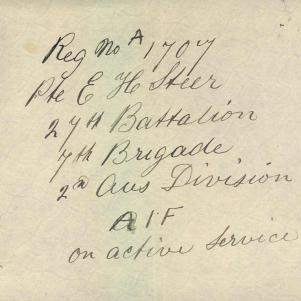 Reg No A 1707
Pte E H Steer
27th Battalion
7th Brigade
2nd Aus Division
AIF
on active service